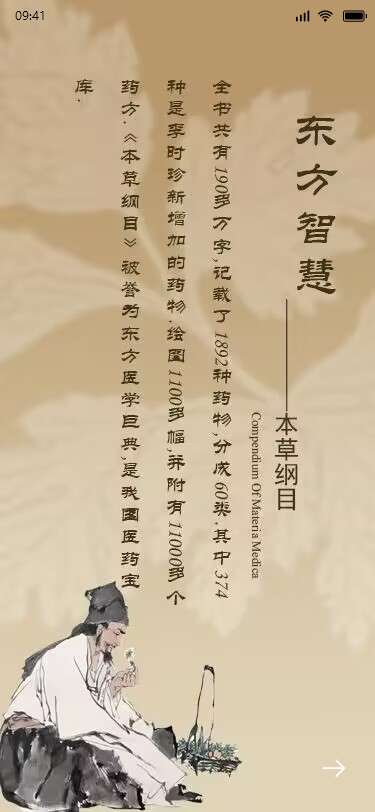 09:41
东方智慧
——本草纲目
Compendium Of Materia Medica
全书共有190多万字,记载了1892种药物,分成60类.其中374
种是李时珍新增加的药物.绘图1100多幅,并附有11000多个
药方.《本草纲目》被誉为东方医学巨典,是我国医药宝
库.